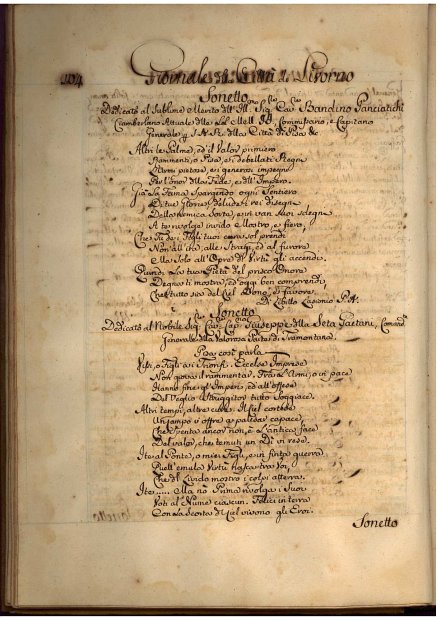 104 Giornale di Città di Livorno
Sonetto
Dedicato al Sublime Merito dell' Ill. Sig. Cav. Bandino Panciatichi
Ciamberlano Attuale delle Commissario, e Capitano
Generale p S.A.R. della Città di Pisa &c
Altri le Palme, ed il Valor primiero
Rammenti, o Pisa, e i debellati Regni
L'armi pietose, e i generosi impegni
Per l'onor della Fede, e dell' Impero.
Già la Fama Spargendo ogni Sentiero
Di tue Glorie,
Della nemica Sorte, e in van suoi sdegni
A te rivolge invido Mostro, e fiero,
Che Tu de' Figli tuoi cura sol prendi
Non all' ire, alle Stragi, ed al furore
Ma Solo all' Opre di Virtù gli accendi.
Quindi La tua Pietà del prisco Onore
Degna si mostra, ed oggi ben comprendi,
Che tutto sia del Ciel Dono, e favore.
Di P.A.
Sonetto
Dedicato al Nobile Sig. Cav. Cap. Giuseppe della Seta Gaetani, Comand.
Generale della Valorosa Parte di Tramontana.
Pisa così parla
Visi, o Figli, a i Trionfi. Eccelse Imprese
Non giova il rammentar. Fra l'Armi, o in pace
Hanno fine gl' Imperi, ed all' offese
Del Veglio Struggitor tutto Soggiace.
Altri tempi, altre cure. Il Ciel cortese
Un campo v' offre a palesar capace,
Che Spenta ancor non è L'antica face
Del Valor, che temuti un Dì vi rese.
Ite al Ponte, o miei Figli, e in finta guerra
Quell' emula Virtù nasca tra Voi,
Che del Livido mostro i colpi atterra.
Ite..... Ma nò Prima rivolga i Suoi
Voti al Nume ciascun. Felici in terra
Con La Scorta di Lui vivono gli Eroi.
Sonetto